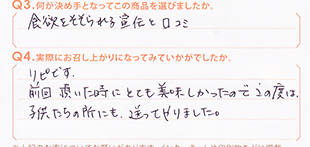 Q3.何が決め手となってこの商品を選びましたか。
食欲をそそられる宣伝と口コミ
Q4.実際にお召し上がりになってみていかがでしたか。
リピです。
前回頂いた時にとても美味しかったのでこの度は、
子供たちの所にも、送ってやりました。